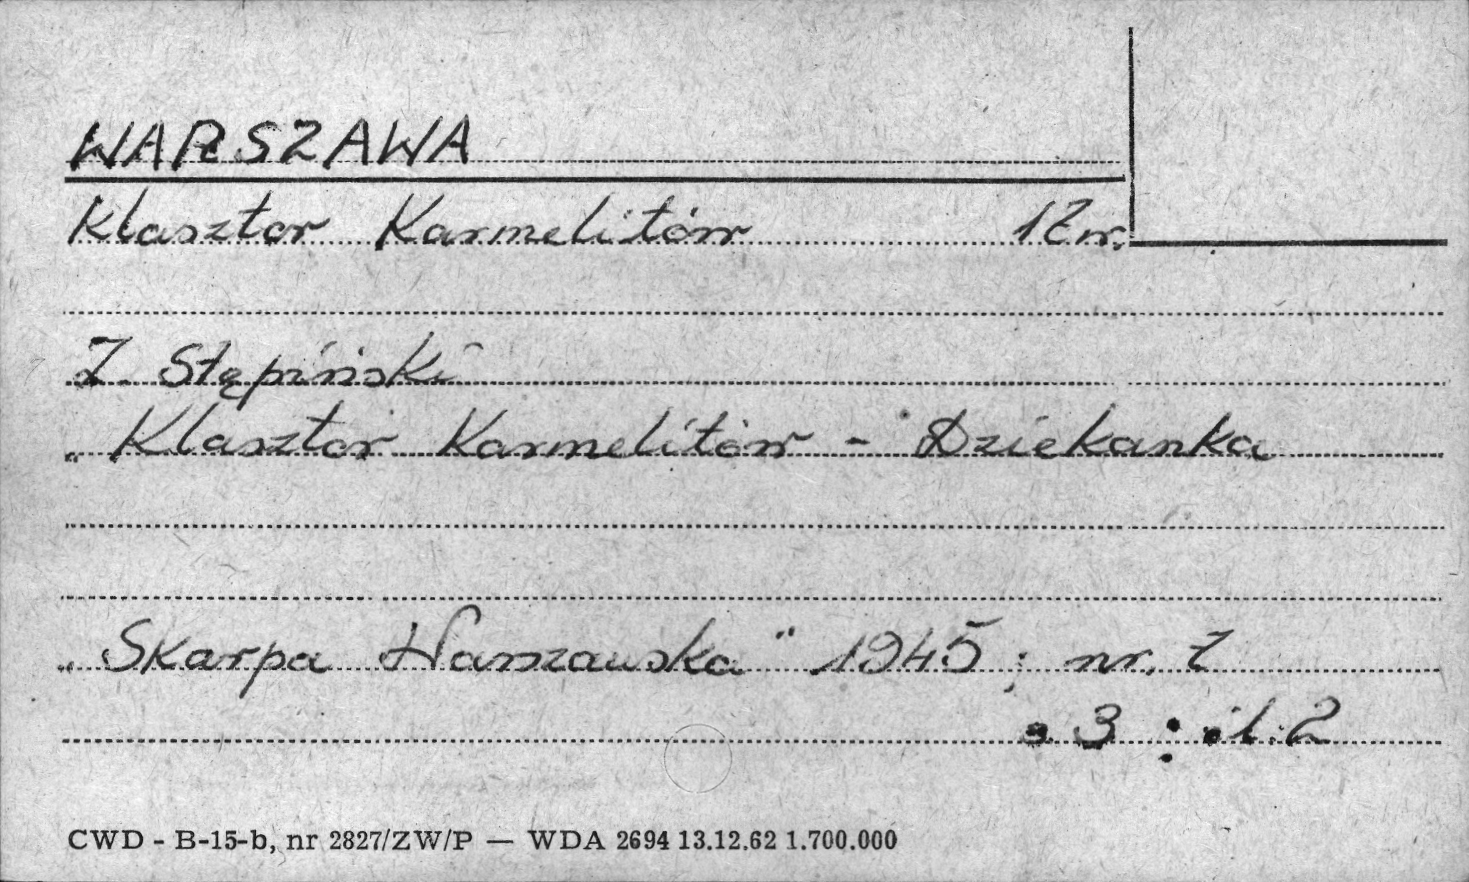 WARSZAWA
Klasztor Karmelitów
Z. Stępiński
„Klasztor Karmelitów - Dziekanka
„Skarpa Warszawska" 1945; nr. 7
s. 3; il. 2
CWD - B-15-b, nr 2827/ZW/P — WDA 2694 13.12.62 1.700.000